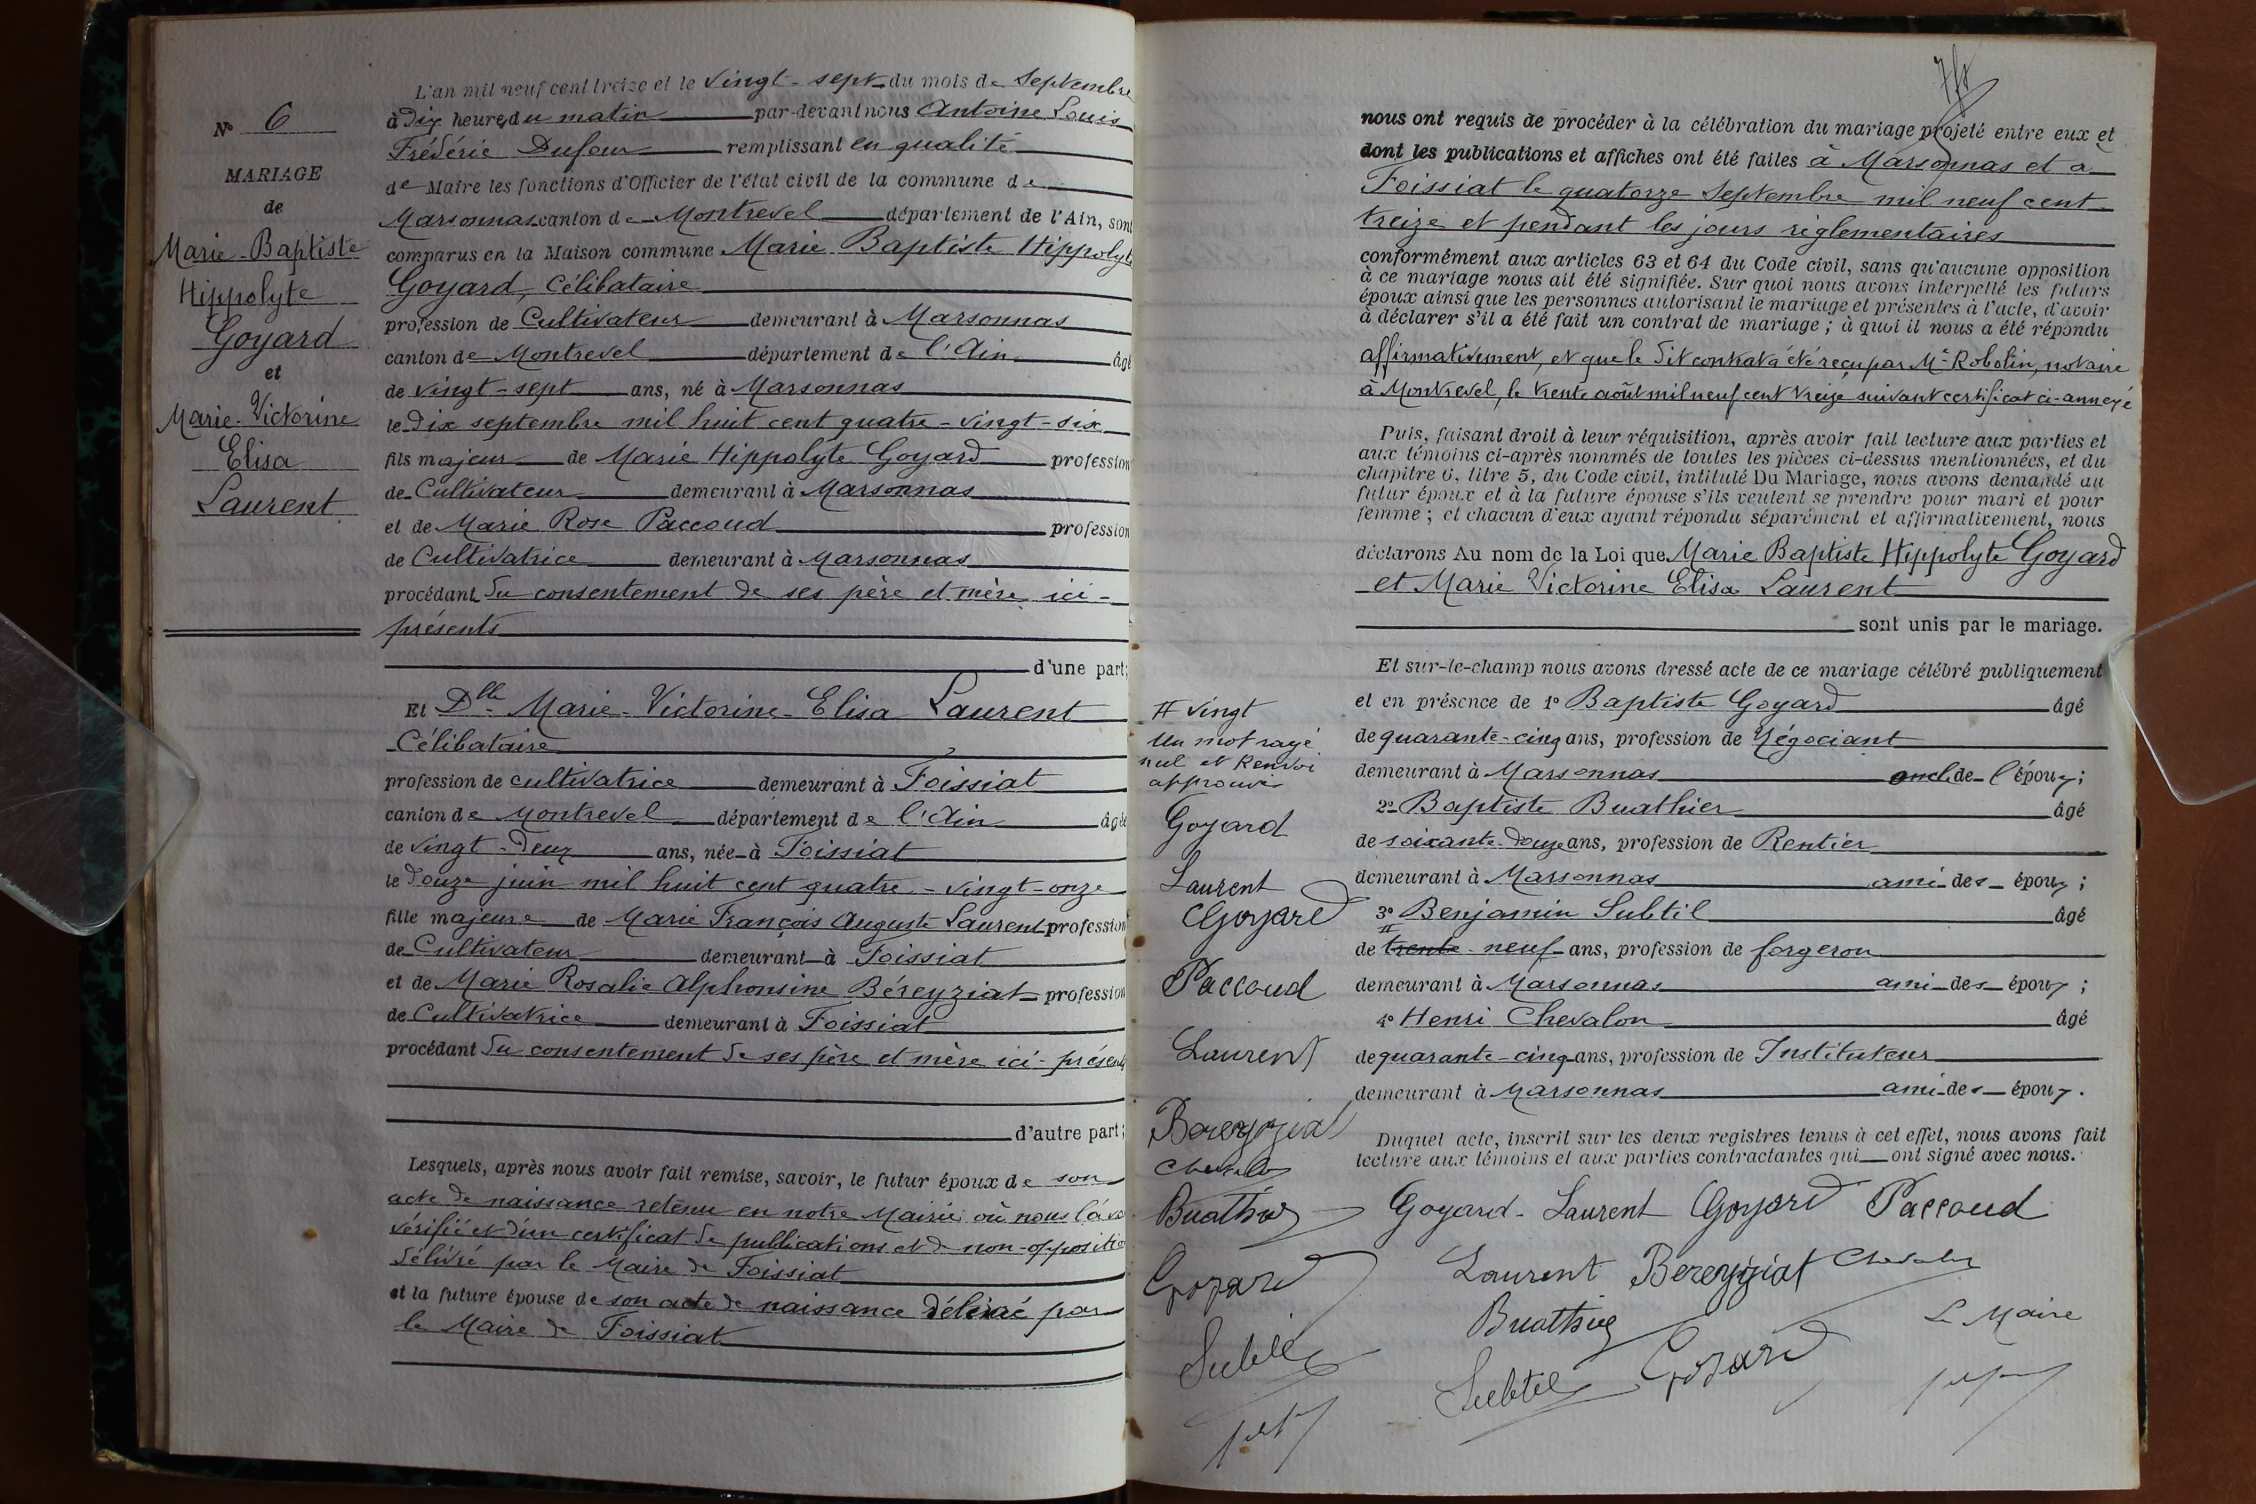 N° 6
MARIAGE
de
Marie-Baptiste
Hippolyte
Goyard
et
Marie-Victorine
Elisa
Laurent
L'an mil neuf cent treize et le vingt-sept du mois de Septembre
à Dix heures du matin par-devant nous Antoine Louis
Frédéric Dufour remplissant en qualité
de Maire les fonctions d'Officier de l'état civil de la commune de
Marsonnas canton de Montrevel département de l'Ain, sont
comparus en la Maison commune Marie Baptiste Hippolyte
Goyard, Célibataire
profession de Cultivateur demeurant à Marsonnas
canton de Montrevel département de l'Ain âgé
de vingt-sept ans, né à Marsonnas
le Dix septembre mil huit cent quatre-vingt-six
fils majeur de Marie Hippolyte Goyard profession
de Cultivateur demeurant à Marsonnas
et de Marie Rose Paccoud profession
de Cultivatrice demeurant à Marsonnas
procédant du consentement de ses père et mère ici-
présents
d'une part;
Et Dlle Marie-Victorine-Elisa Laurent
Célibataire
profession de cultivatrice demeurant à Foissiat
canton de Montrevel département de l'Ain âgée
de vingt-deux ans, née à Foissiat
le douze juin mil huit cent quatre-vingt-onze
fille majeure de Marie François Auguste Laurent profession
de Cultivateur demeurant à Foissiat
et de Marie Rosalie Alphonsine Béreyziat profession
de Cultivatrice demeurant à Foissiat
procédant du consentement de ses père et mère ici-présents
d'autre part;
Lesquels, après nous avoir fait remise, savoir, le futur époux de son
acte de naissance retenu en notre Mairie où nous l'avons
vérifié et d'un certificat de publications et de non-opposition
délivré par le Maire de Foissiat
et la future épouse de son acte de naissance délivré par
le Maire de Foissiat
nous ont requis de procéder à la célébration du mariage projeté entre eux et
dont les publications et affiches ont été faites à Marsonnas et à
Foissiat le quatorze Septembre mil neuf cent
treize et pendant les jours réglementaires
conformément aux articles 63 et 64 du Code civil, sans qu'aucune opposition
à ce mariage nous ait été signifiée. Sur quoi nous avons interpellé les futurs
époux ainsi que les personnes autorisant le mariage et présentes à l'acte, d'avoir
à déclarer s'il a été fait un contrat de mariage ; à quoi il nous a été répondu
affirmativement, et que le dit contrat a été reçu par Me Robolin, notaire
à Montrevel, le trente août mil neuf cent treize suivant certificat ci-annexé
Puis, faisant droit à leur réquisition, après avoir fait lecture aux parties et
aux témoins ci-après nommés de toutes les pièces ci-dessus mentionnées, et du
chapitre 6, titre 5, du Code civil, intitulé Du Mariage, nous avons demandé au
futur époux et à la future épouse s'ils veulent se prendre pour mari et pour
femme ; et chacun d'eux ayant répondu séparément et affirmativement, nous
déclarons Au nom de la Loi que Marie Baptiste Hippolyte Goyard
et Marie Victorine Elisa Laurent
sont unis par le mariage.
Et sur-le-champ nous avons dressé acte de ce mariage célébré publiquement
et en présence de 1° Baptiste Goyard âgé
de quarante-cinq ans, profession de Négociant
demeurant à Marsonnas oncle de l'époux ;
2° Baptiste Buathier âgé
de soixante-douze ans, profession de Rentier
demeurant à Marsonnas ami des époux ;
3° Benjamin Subtil âgé
de trente-neuf ans, profession de forgeron
demeurant à Marsonnas ami des époux ;
4° Henri Chevalon âgé
de quarante-cinq ans, profession de Instituteur
demeurant à Marsonnas ami des époux.
Duquel acte, inscrit sur les deux registres tenus à cet effet, nous avons fait
lecture aux témoins et aux parties contractantes qui ont signé avec nous.
Goyard Laurent Goyard Paccoud
Laurent Bereyziat Chevalon
Buathier
Subtil Goyard
Le Maire
# vingt
Un mot rayé
nul et Renvoi
approuvés
Goyard
Laurent
Goyard
Paccoud
Laurent
Bereyziat
Chevalon
Buathier
Goyard
Subtil